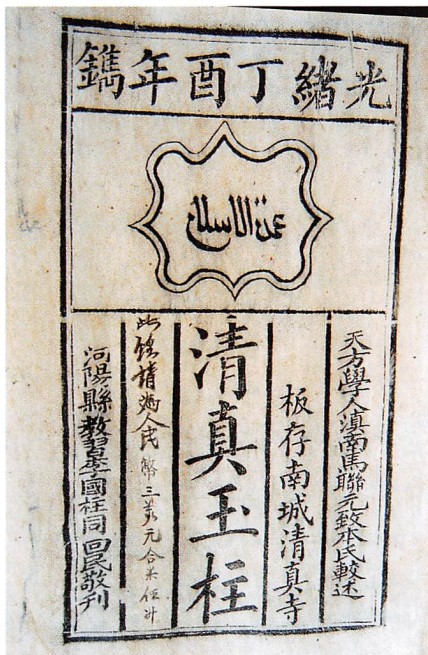 光緒丁酉年鐫
عمدة الاسلام
天方學人滇南馬聯元致本氏較述
板存南城清真寺
清真玉柱
此經請為人民幣三萬元合米伍升
河陽縣教習李國柱同 回民敬刊